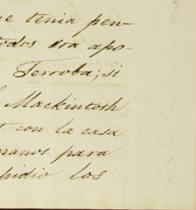 e tenia pen-
todos era apo-
Terroba; si
Mackintosh
con la casa
manos para
pidio los